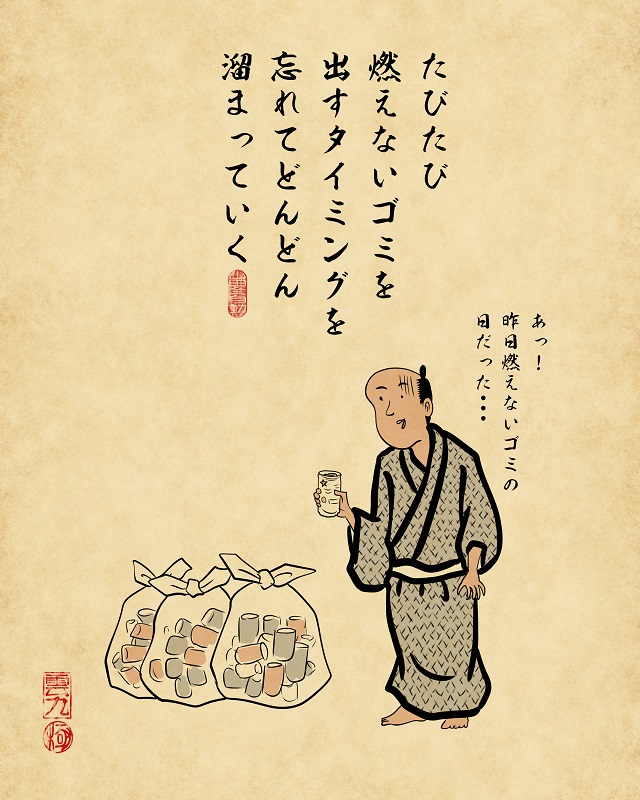 たびたび
燃えないゴミを
出すタイミングを
忘れてどんどん
溜まっていく
あっ！
昨日燃えないゴミの
日だった・・・